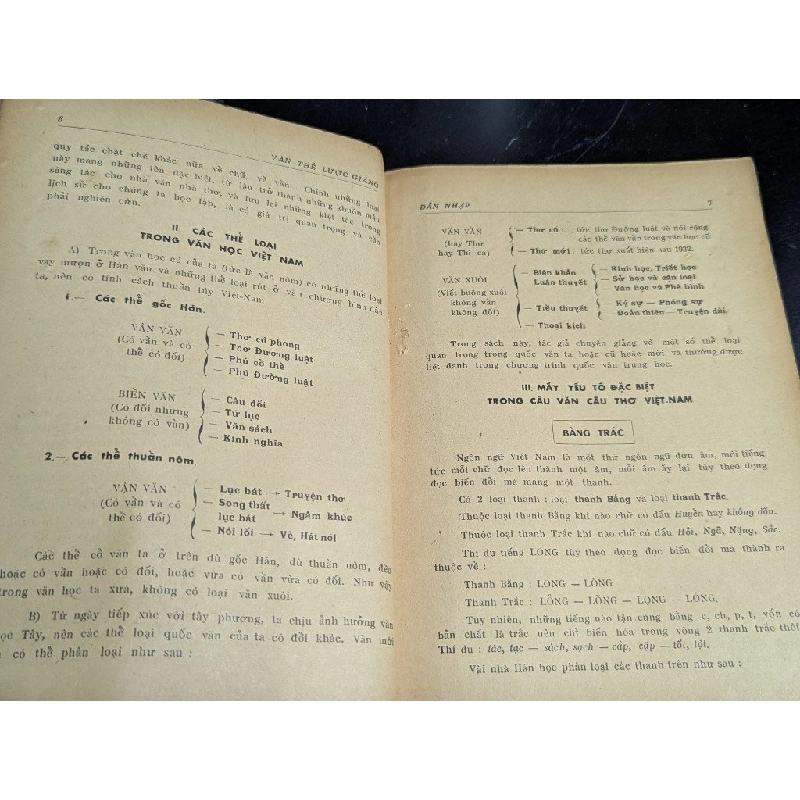 6
VĂN THỂ LƯỢC GIẢNG
quy tắc chặt chẽ khác nữa về chữ, về vần. Chính những loại
này mang những tên đặc biệt, từ lâu trở thành những khuôn mẫu
sáng tác cho nhà văn nhà thơ, và lưu lại những kiệt tác trong
lịch sử cho chúng ta học tập, là có giá trị quan trọng và cần
phải nghiên cứu.
II. CÁC THỂ LOẠI
TRONG VĂN HỌC VIỆT NAM
A) Trong văn học cổ của ta (tức là văn nôm) có những thể loại
vay mượn ở Hán văn và những thể loại rút ở văn chương bình dân
ta, nên có tính cách thuần túy Việt-Nam.
1.— Các thể gốc Hán.
VẬN VĂN
(Có vần và có
thể có đối)
— Thơ cổ phong
— Thơ Đường luật
— Phú cổ thể
— Phú Đường luật
BIỀN VĂN
(Có đối nhưng
không có vần)
— Câu đối
— Tứ lục
— Văn sách
— Kinh nghĩa
2.— Các thể thuần nôm
VẬN VĂN
(Có vần và có
thể có đối)
— Lục bát → Truyện thơ
— Song thất
lục bát → Ngâm khúc
— Nói lối → Vè, Hát nói
Các thể cổ văn ta ở trên dù gốc Hán, dù thuần nôm, đều
hoặc có vần hoặc có đối, hoặc vừa có vần vừa có đối. Như vậy
trong văn học ta xưa, không có loại văn xuôi.
B) Từ ngày tiếp xúc với tây phương, ta chịu ảnh hưởng văn
học Tây, nên các thể loại quốc văn của ta có đổi khác. Văn mới
có thể phân loại như sau :
DẪN NHẬP
7
VẬN VĂN
(hay Thơ
hay Thi ca)
— Thơ cũ : tức thơ Đường luật và nói rộng
các thể văn vần trong văn học cũ
— Thơ mới : tức thơ xuất hiện sau 1932.
VĂN XUÔI
(Viết buông xuôi
không vần
không đối)
— Biên khảo
Luận thuyết
— Kinh học, Triết học
— Sử học và các loại
Văn học và Phê bình
— Tiểu thuyết
Ký sự — Phóng sự
Đoản thiên — Truyện dài.
— Thoại kịch
Trong sách này, tác giả chuyên giảng về một số thể loại
quan trọng trong quốc văn ta hoặc cũ hoặc mới và thường được
liệt định trong chương trình quốc văn trung học.
III. MẤY YẾU TỐ ĐẶC BIỆT
TRONG CÂU VĂN CÂU THƠ VIỆT-NAM
BẰNG TRẮC
Ngôn ngữ Việt Nam là một thứ ngôn ngữ đơn âm, mỗi tiếng
tức mỗi chữ đọc lên thành một âm, mỗi âm ấy lại tùy theo dọng
đọc biến đổi mà mang một thanh.
Có 2 loại thanh : loại thanh Bằng và loại thanh Trắc.
Thuộc loại thanh Bằng khi nào chữ có dấu Huyền hay không dấu.
Thuộc loại thanh Trắc khi nào chữ có dấu Hỏi, Ngã, Nặng, Sắc.
Thí dụ tiếng LONG tùy theo dọng đọc biến đổi mà thành ra
thuộc về :
Thanh Bằng : LONG — LÒNG
Thanh Trắc : LỎNG — LÕNG — LỌNG — LÓNG.
Tuy nhiên, những tiếng nào tận cùng bằng c, ch, p, t, vốn có
bản chất là trắc nên chỉ biến hóa trong vòng 2 thanh trắc thôi.
Thí dụ : tác, tạc — sách, sạch — cáp, cạp — tốt, lột.
Vài nhà Hán học phân loại các thanh trên như sau :